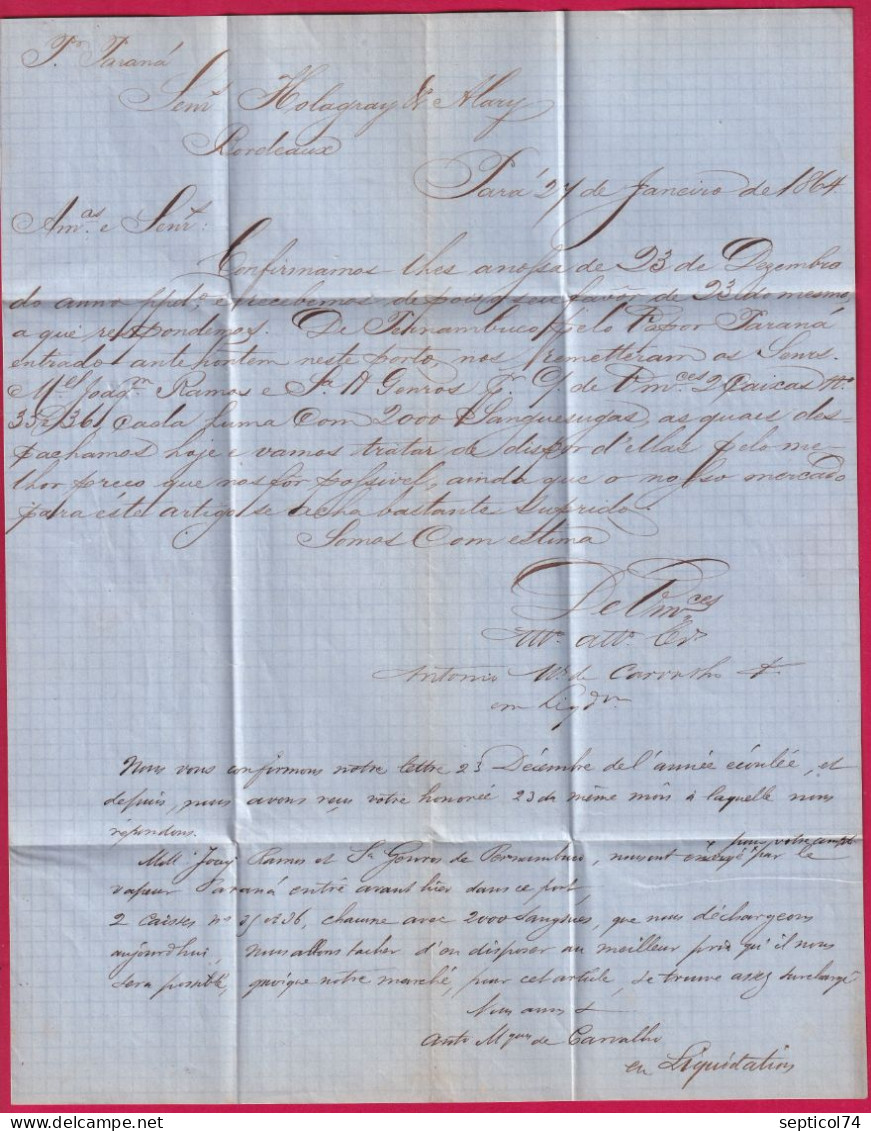 Pr Paraná
Senrs Holagray & Alary
Bordeaux
Pará 27 de Janeiro de 1864
Amas e Senrs:
Confirmamos lhes a nossa de 23 de Dezembro
do anno ppdo, e recebemos depois o seu favor de 23 do mesmo,
a que respondemos. De Pernambuco pielo Vapor Paraná
entrado ante hontem neste porto, nos remetteram os Senrs.
Mel Joaqm Ramos e Sa Genros Pr C/ de Vmces 2 Caixas Nos
35 e 36, cada huma Com 2000 Sanguesugas, as quaes des-
pachamos hoje e vamos tratar de dispor d'ellas pelo me-
lhor preço que nos fôr possivel, ainda que o nosso mercado
para éste artigo se acha bastante suprido.
Somos Com estima
De Vmces
Mto atto Ves
Antonio Ms de Carvalho &
em Liqdm
Nous vous confirmons notre lettre 23 Décembre de l'année écoulée, et
depuis, nous avons reçu votre honorée 23 du même mois à laquelle nous
répondons.
pour votre compt
Mell Joaq Ramos et Sa Genros de Pernambuco, nous ont envoyé par le
vapeur Paraná entré avant hier dans ce port,
2 caisses nos 35 et 36, chacune avec 2000 Sangsues, que nous déchargeons
aujourd'hui, Nous allons tacher d'en disposer au meilleur prix qu'il nous
sera possible, quoique notre marché, pour cet article, se trouve assez surchargé
Nous avons &
Anto Mques de Carvalho
en Liquidation
septicol74